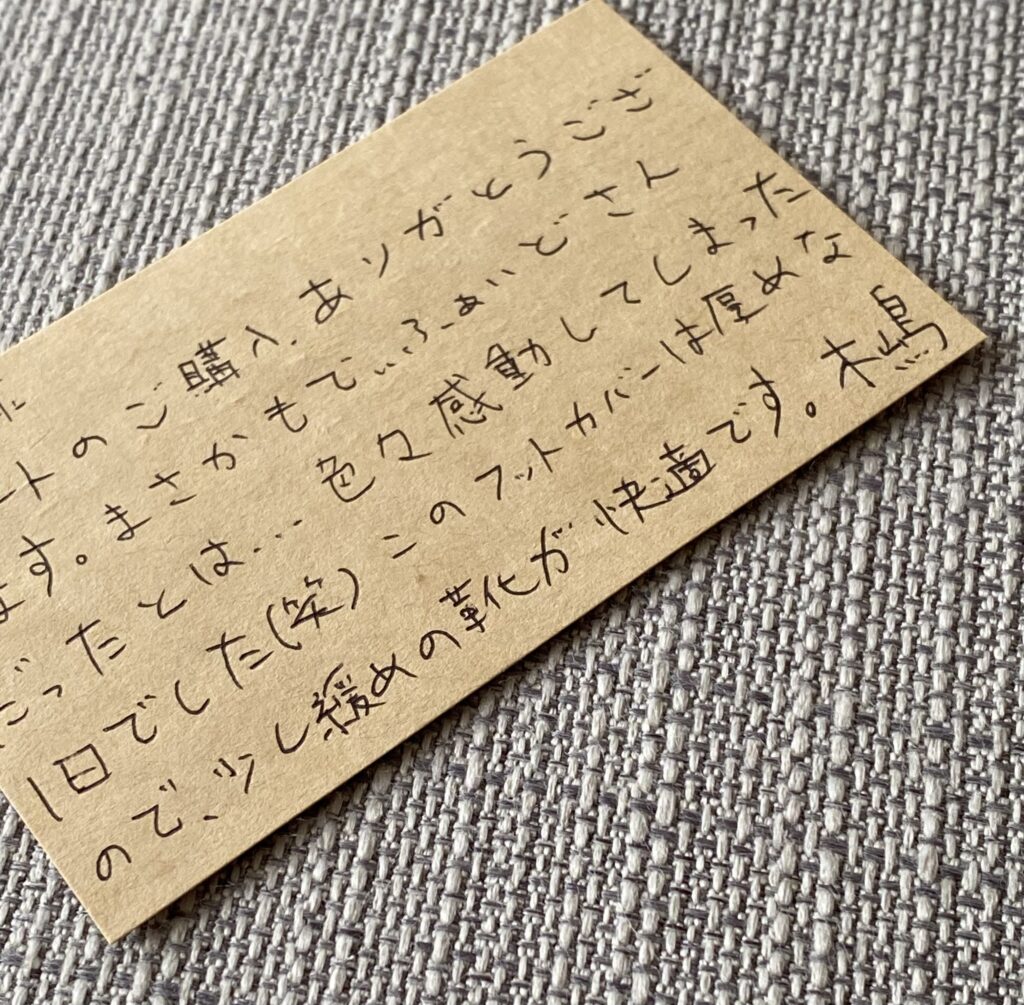 ートのご購入、ありがとうござ
ます。まさかもでぃふぁいどさん
だったとは… 色々感動してしまった
1日でした(笑) このフットカバーは厚めな
ので、少し緩めの靴が快適です。木嶋